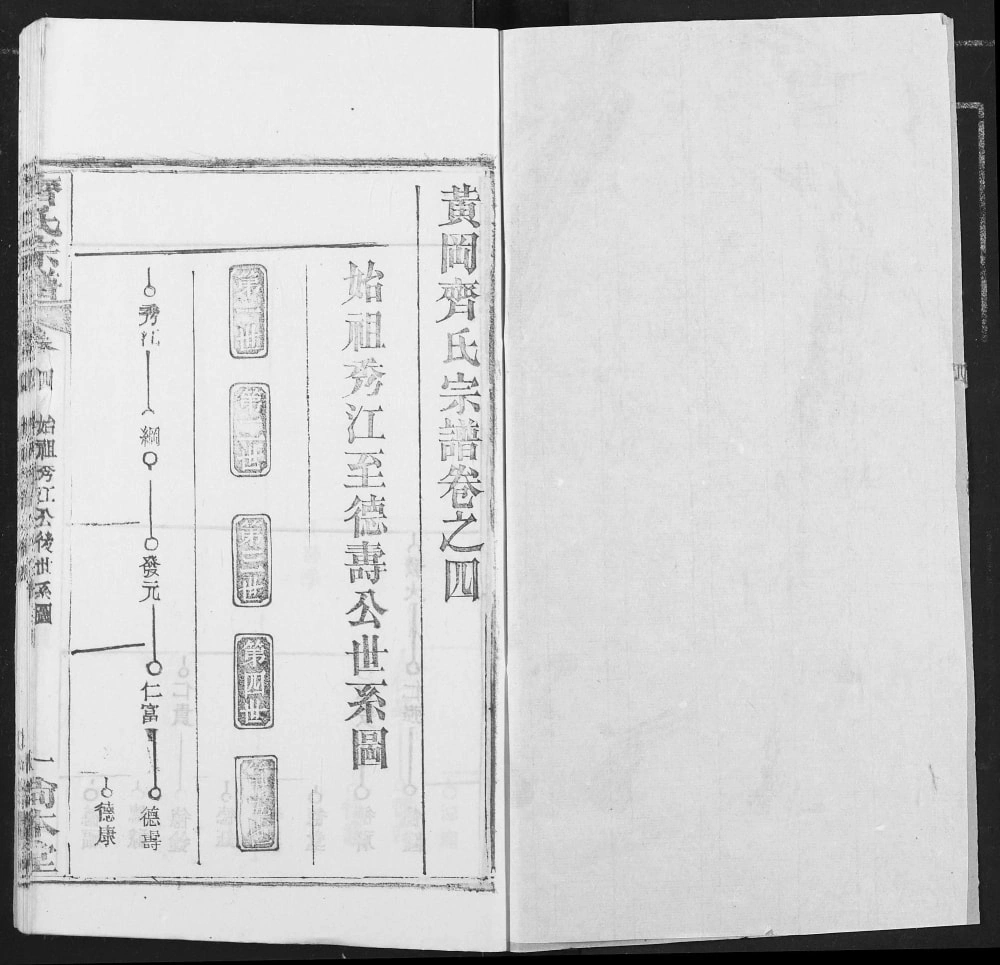 黃岡齊氏宗譜卷之四
始祖秀江至德壽公世系圖
第一世
第二世
第三世
第四世
第五世
秀江
綱
發元
仁富
德壽
德康
齊氏宗譜
卷四
始祖秀江公後世系圖
一
四